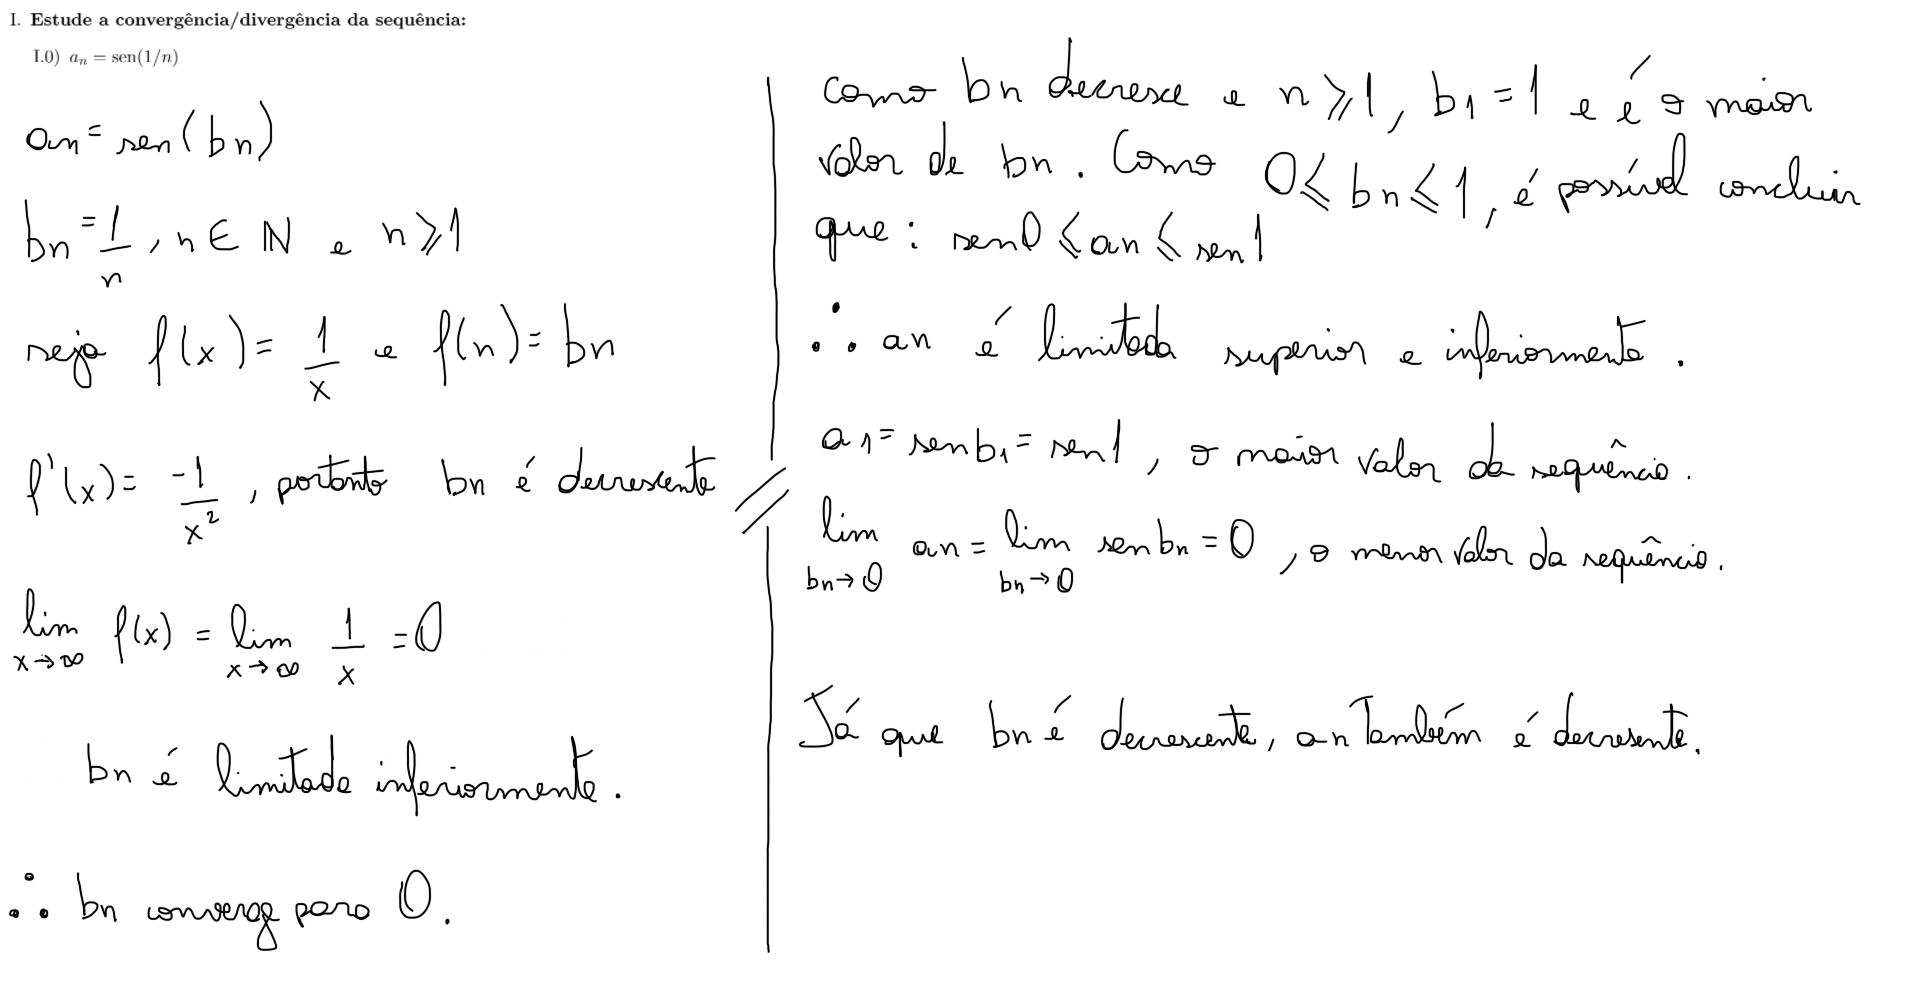 I. Estude a convergência/divergência da sequência:
I.0) aₙ = sen(1/n)
an = sen(bn)
bn = 1/n, n ∈ ℕ e n ⩾ 1
seja f(x) = 1/x e f(n) = bn
f'(x) = -1/x², portanto bn é decrescente
lim x→∞ f(x) = lim x→∞ 1/x = 0
bn é limitada inferiormente.
∴ bn converge para 0.
como bn decresce e n ⩾ 1, b1 = 1 e é o maior
valor de bn. Como 0 ⩽ bn ⩽ 1, é possível concluir
que: sen0 ⩽ an ⩽ sen1
∴ an é limitada superior e inferiormente.
a1 = senb1 = sen1, o maior valor da sequência.
lim bn→0 an = lim bn→0 senbn = 0, o menor valor da sequência.
Já que bn é decrescente, an também é decresente.